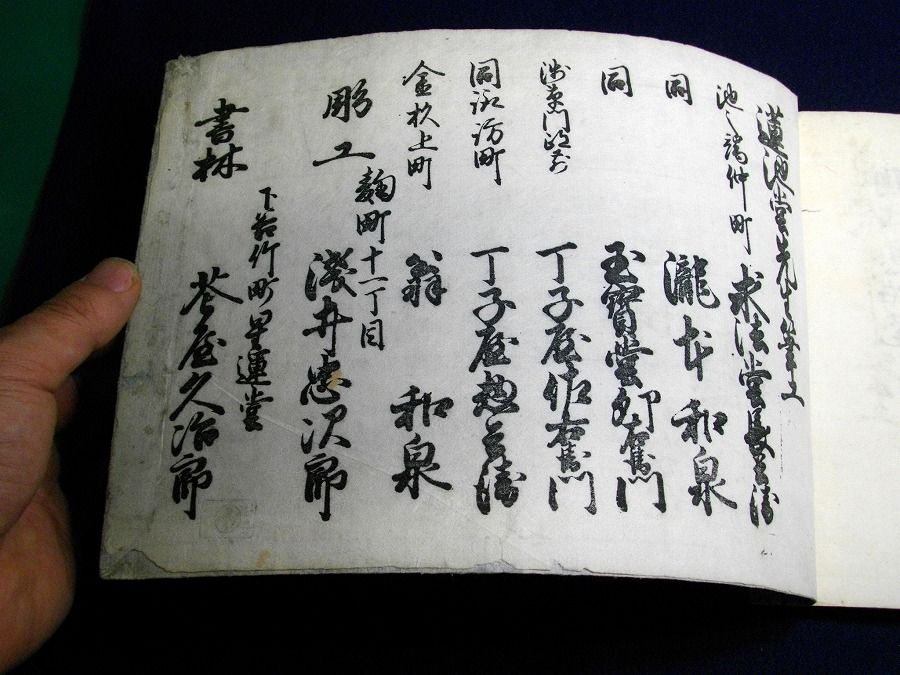 蓮池堂先生筆工
池之端仲町 求法堂長兵衛
同 瀧本和泉
同 玉寶堂卯右衛門
御東門跡前 丁子屋佐右衛門
同諏訪町 丁子屋惣兵衛
金杦上町 翁和泉
彫工 麹町十一丁目 淺井忠次郎
下谷竹町星運堂
書林 花屋久治郎